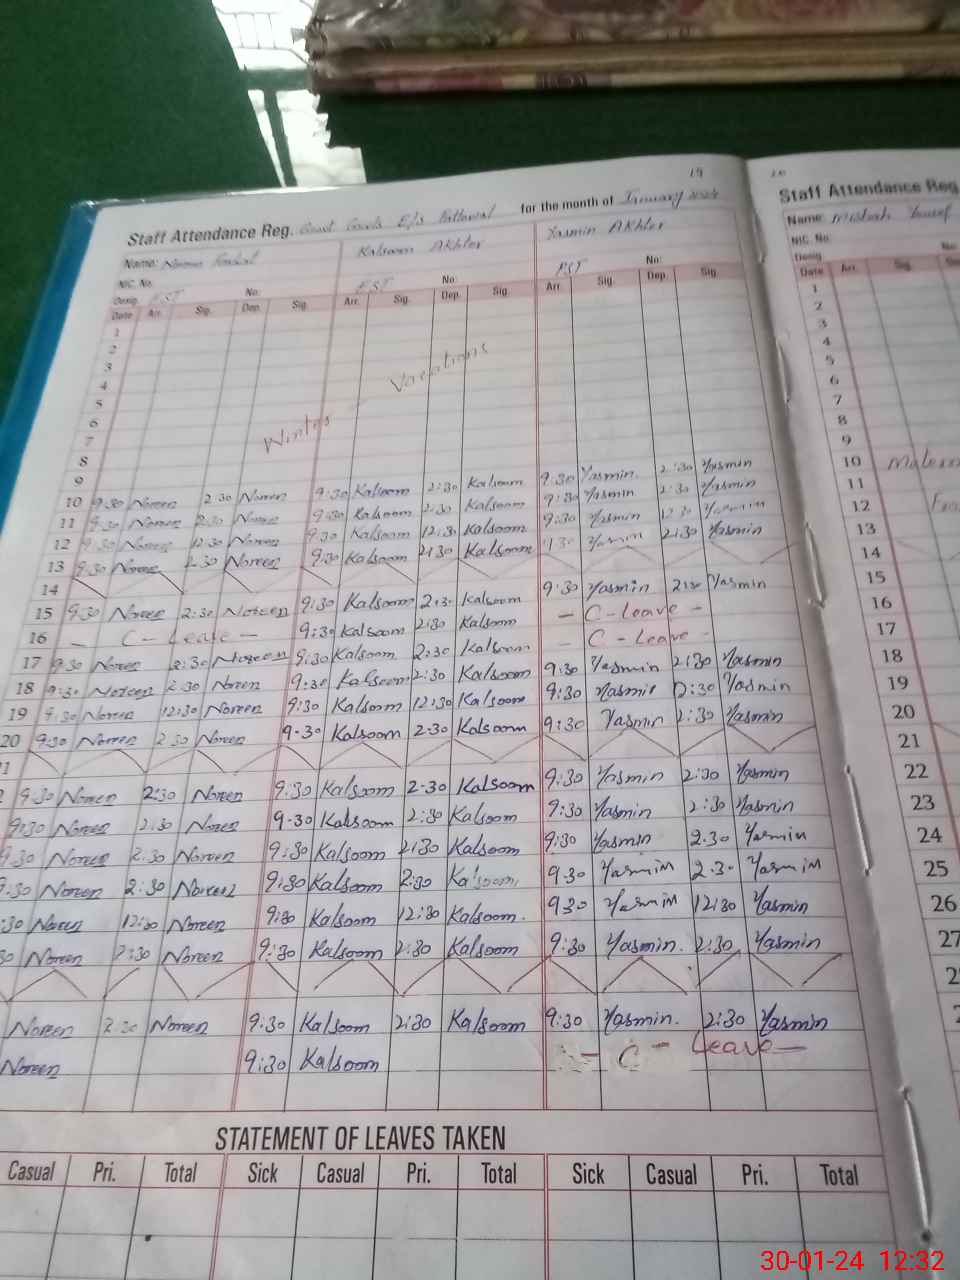 19
Staff Attendance Reg. Govt Girls E/S for the month of January 2024
Name: Noreen Kalsoom Akhter Yasmin Akhter
NIC. No.
Desig. EST No: EST No: PST No:
Date Arr. Sig. Dep. Sig. Arr. Sig. Dep. Sig. Arr. Sig. Dep. Sig.
1
2
3
4
5
6
7
8
9
Winter - Vacations
10 9:30 Noreen 2:30 Noreen 9:30 Kalsoom 2:30 Kalsoom 9:30 Yasmin. 2:30 Yasmin
11 9:30 Noreen 2:30 Noreen 9:30 Kalsoom 2:30 Kalsoom 9:30 Yasmin 2:30 Yasmin
12 9:30 Noreen 12:30 Noreen 9:30 Kalsoom 12:30 Kalsoom 9:30 Yasmin 12:30 Yasmin
13 9:30 Noreen 2:30 Noreen 9:30 Kalsoom 2:30 Kalsoom 9:30 Yasmin 2:30 Yasmin
14
15 9:30 Noreen 2:30 Noreen 9:30 Kalsoom 2:30 Kalsoom 9:30 Yasmin 2:30 Yasmin
16 - C - Leave - 9:30 Kalsoom 2:30 Kalsoom - C - Leave -
17 9:30 Noreen 2:30 Noreen 9:30 Kalsoom 2:30 Kalsoom - C - Leave -
18 9:30 Noreen 2:30 Noreen 9:30 Kalsoom 2:30 Kalsoom 9:30 Yasmin 2:30 Yasmin
19 9:30 Noreen 12:30 Noreen 9:30 Kalsoom 12:30 Kalsoom 9:30 Yasmin 12:30 Yasmin
20 9:30 Noreen 2:30 Noreen 9-30 Kalsoom 2-30 Kalsoom 9:30 Yasmin 2:30 Yasmin
1
9:30 Noreen 2:30 Noreen 9:30 Kalsoom 2-30 Kalsoom 9:30 Yasmin 2:30 Yasmin
9:30 Noreen 2:30 Noreen 9-30 Kalsoom 2:30 Kalsoom 9:30 Yasmin 2:30 Yasmin
9:30 Noreen 2:30 Noreen 9:30 Kalsoom 2:30 Kalsoom 9:30 Yasmin 2.30 Yasmin
9:30 Noreen 2:30 Noreen 9:30 Kalsoom 2:30 Kalsoom 9:30 Yasmin 2:30 Yasmin
:30 Noreen 12:30 Noreen 9:30 Kalsoom 12:30 Kalsoom. 930 Yasmin 12:30 Yasmin
30 Noreen 2:30 Noreen 9:30 Kalsoom 2:30 Kalsoom 9:30 Yasmin. 2:30 Yasmin
Noreen 2:30 Noreen 9:30 Kalsoom 2:30 Kalsoom 9:30 Yasmin. 2:30 Yasmin
Noreen 9:30 Kalsoom - C - Leave -
STATEMENT OF LEAVES TAKEN
Casual Pri. Total Sick Casual Pri. Total Sick Casual Pri. Total
Staff Attendance Reg
Name: Misbah Yousaf
NIC. No.
Desig. No:
Date Arr. Sig.
1
2
3
4
5
6
7
8
9
10
11
12
13
14
15
16
17
18
19
20
21
22
23
24
25
26
27
30-01-24 12:32